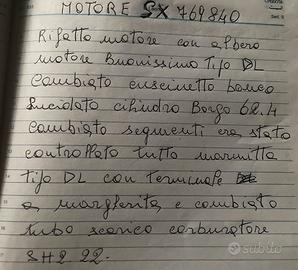 MOTORE SX 769840
Rifatto motore con albero
motore Buonissimo Tipo DL
Cambiato cuscinetto banco
Lucidato cilindro Borgo 62.4
Cambiato segmenti era stato
controllato tutto marmitta
tipo DL con terminale
a margherita e cambiato
tubo scarico carburatore
SH2 22.
subito